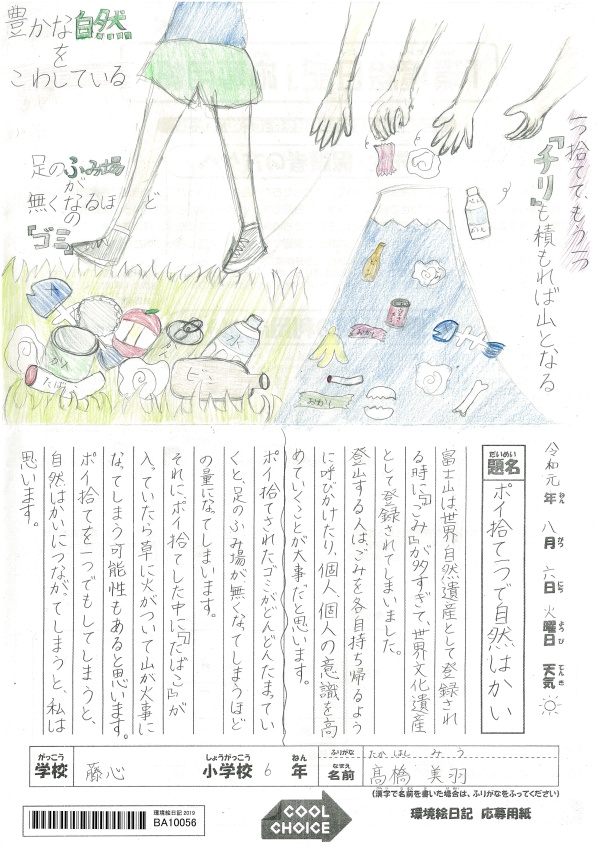 豊かな自然
を
こわしている
足のふみ場
が
無くなるほど
の
『ゴミ』
一つ捨てて、もう一つ
『チリ』も積もれば山となる
かん
たばこ
水
ビン
おかし
おかし
令和元年 八月 六日 火曜日 天気
ねん がつ にち ようび てんき
だいめい
題名
ポイ捨て一つで自然はかい
富士山は世界自然遺産として登録され
る時に『ごみ』が多すぎて、世界文化遺産
として登録されてしまいました。
登山する人は、ごみを各自持ち帰るよう
に呼びかけたり、個人、個人の意識を高
めていくことが大事だと思います。
ポイ捨てされたゴミがどんどんたまってい
くと、足のふみ場が無くなってしまうほど
の量になってしまいます。
それにポイ捨てした中に『たばこ』が
入っていたら草に火がついて山が火事に
なってしまう可能性もあると思います。
ポイ捨てを一つでもしてしまうと、
自然はかいにつながってしまうと、私は
思います。
がっこう
学校
藤心
しょうがっこう
小学校
6
ねん
年
ふりがな
たかはし みう
なまえ
名前
髙橋 美羽
(漢字で名前を書いた場合は、ふりがなをふってください)
環境絵日記 2019
BA10056
COOL
CHOICE
環境絵日記 応募用紙